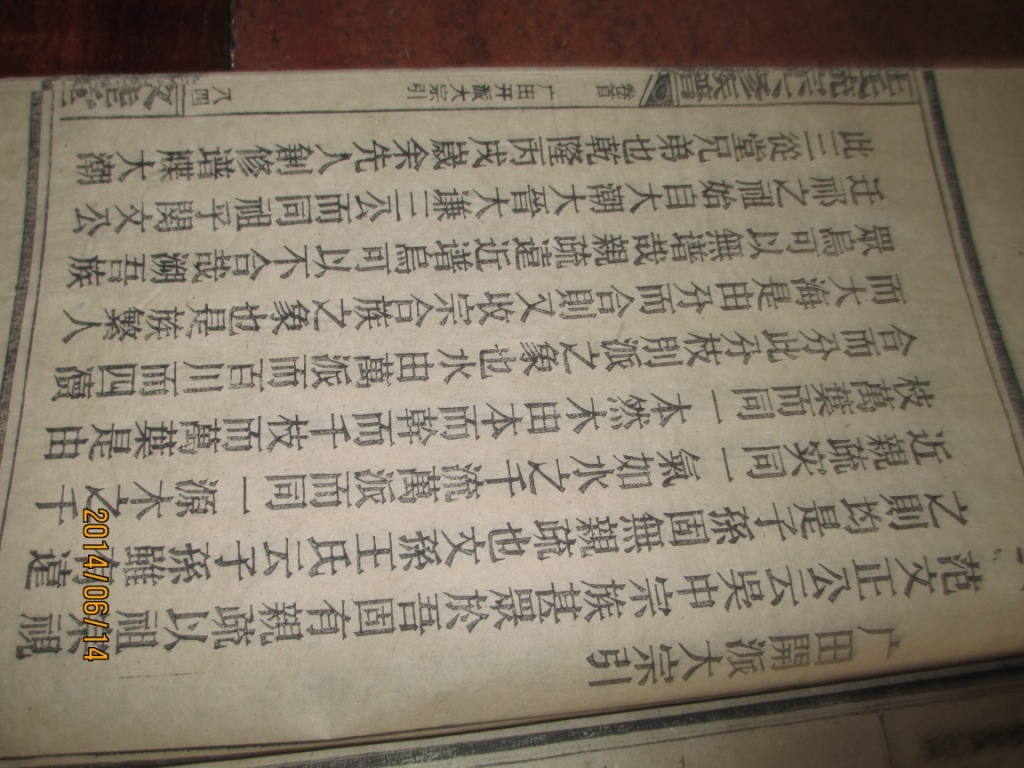 广田開派大宗引
范文正公云吳中宗族甚眾於吾固有親疏以祖視
之則均是子孫固無親疏也文孫王氏云子孫雖有遠
近親疏实同一氣如水之千流萬派而同一源木之千
枝萬葉而同一本然木由本而幹而千枝而萬葉是由
合而分此分枝別派之象也水由萬派而百川而四瀆
而大海是由分而合則又收宗合族之象也是族繁人
眾烏可以無譜哉親疏遠近譜烏可以不合哉溯吾族
近祁之祖始自大潮大晉大谦三公而同祖乎閔文公
此三從堂兄弟也乾隆丙戌歲余先人創修譜牒大潮
六修族譜
卷首
广田开派大宗引
八四
2014/06/14